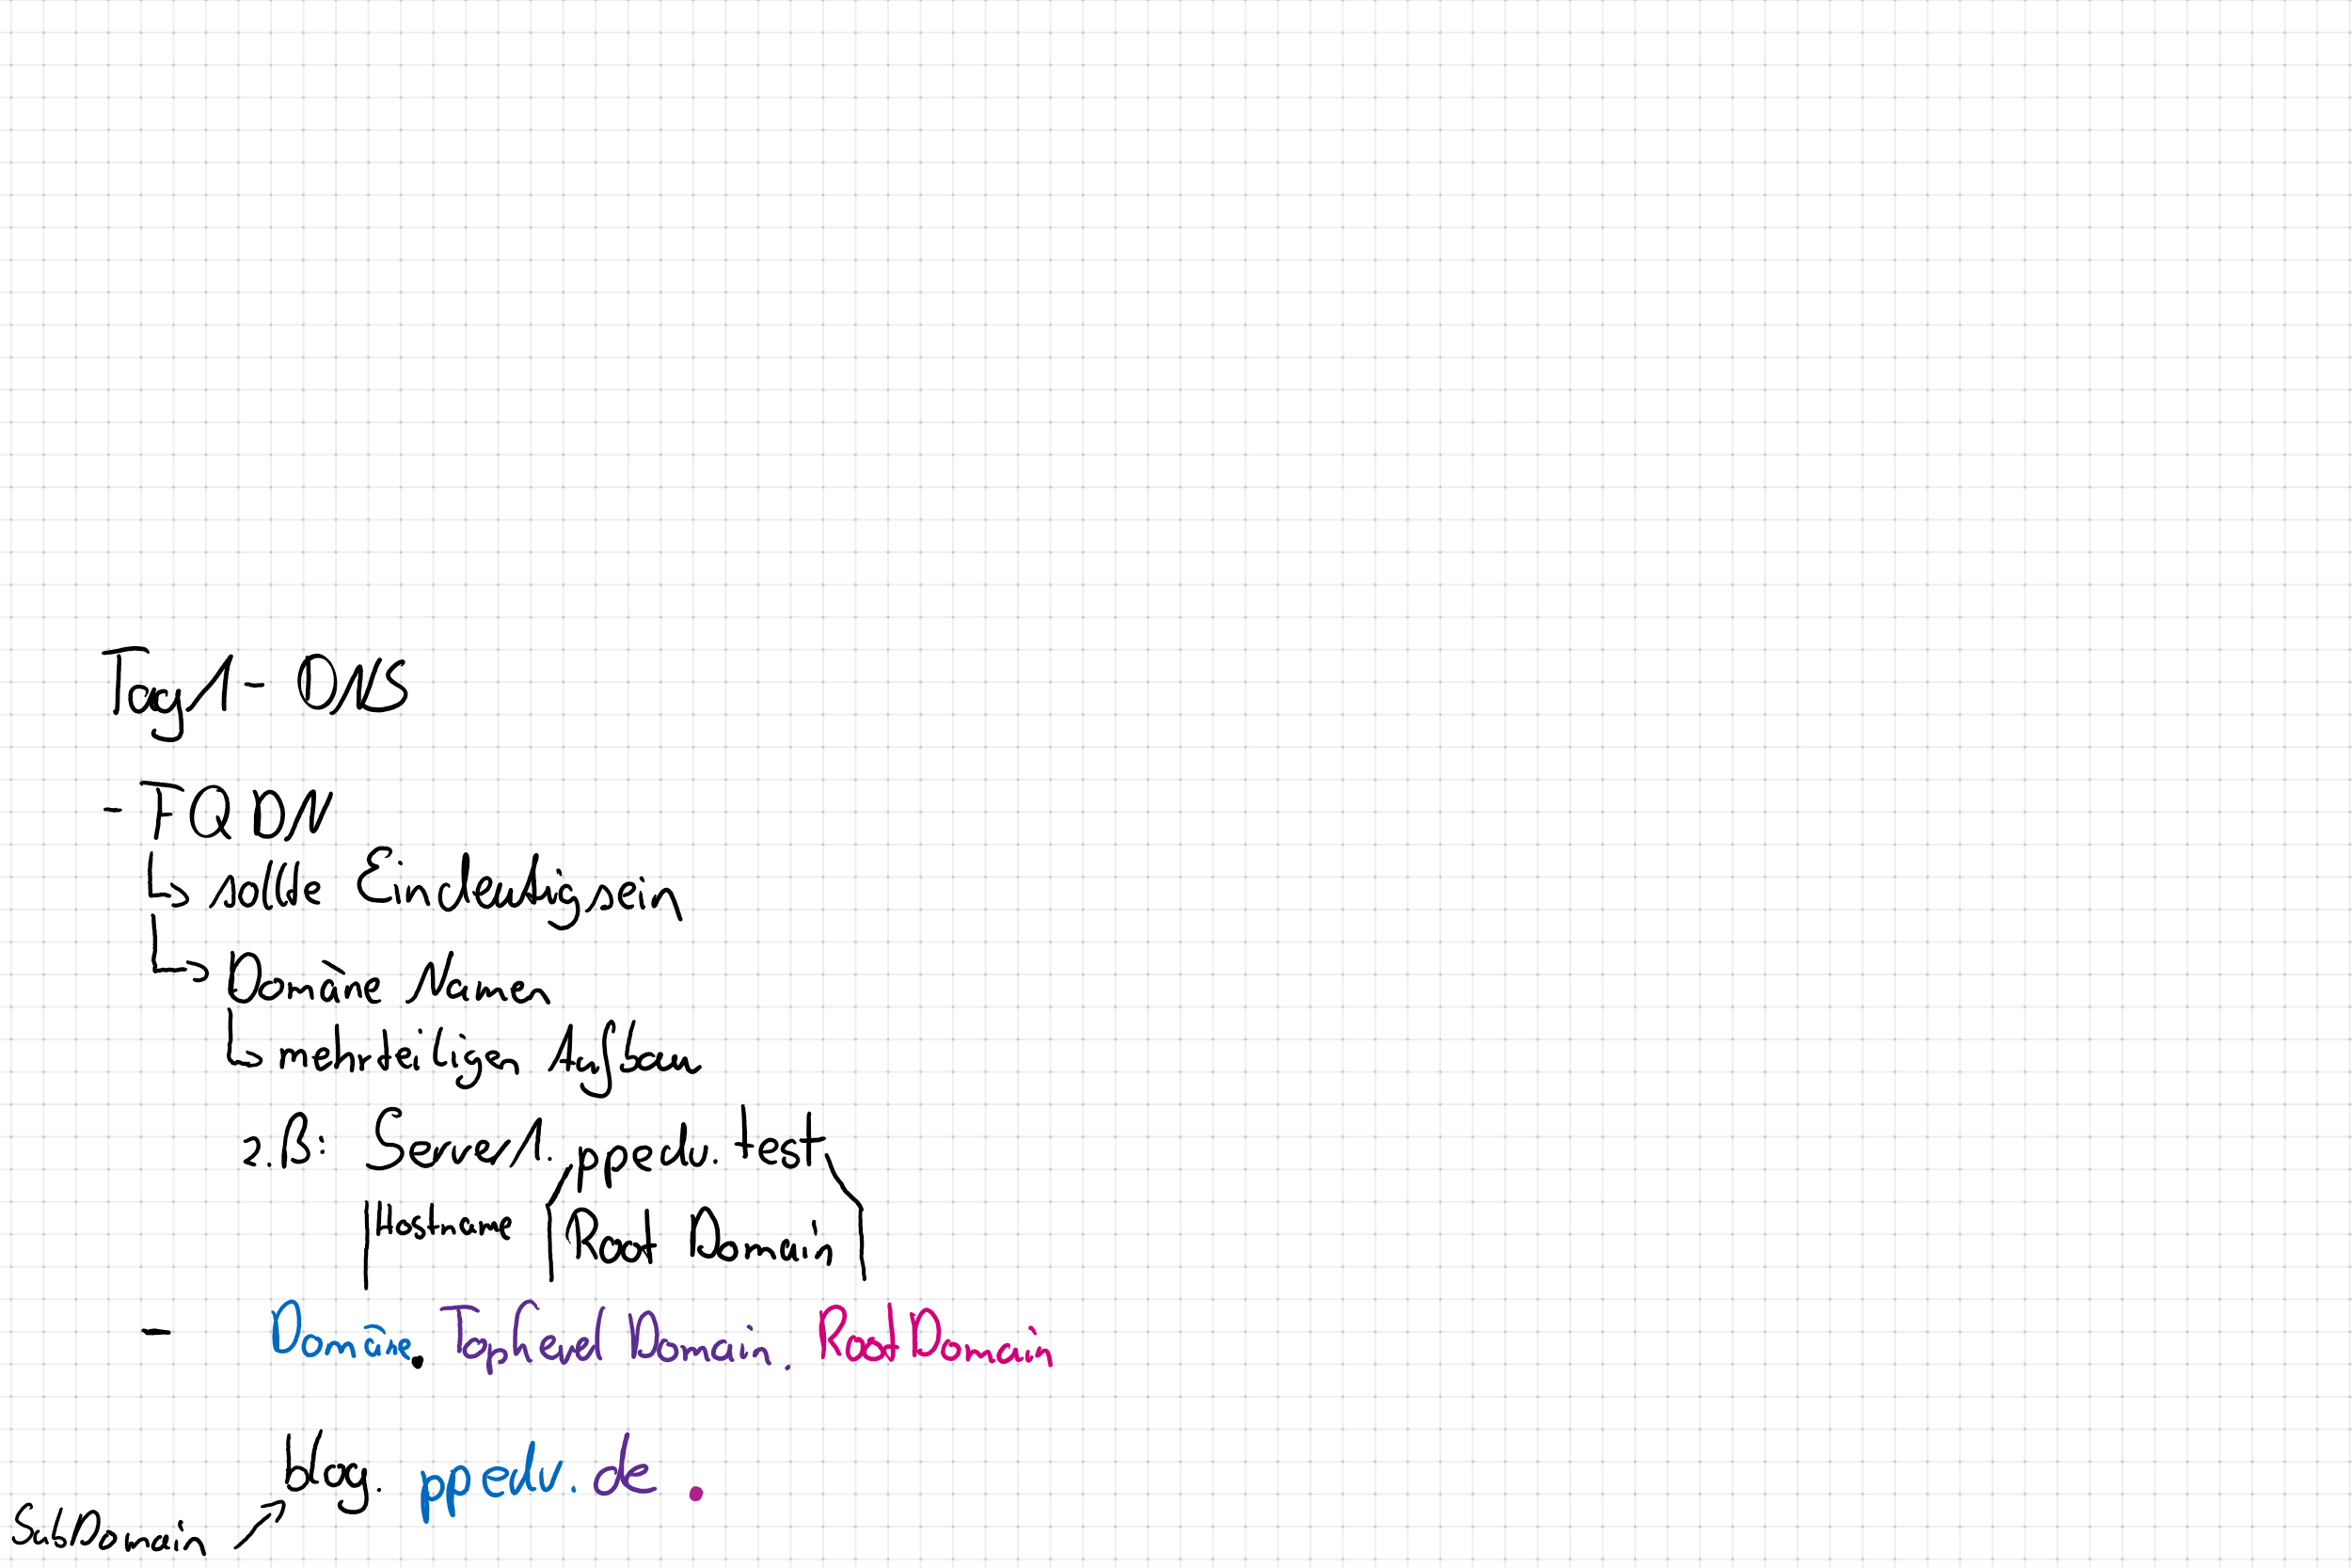 Tag 1 - DNS
- FQDN
↳ sollte Eindeutig sein
↳ Domäne Namen
↳ mehrteiligen Aufbau
z.B: Server1. ppedv. test.
Hostname Root Domain
- Domäne. TopLevel Domain. RootDomain
blog. ppedv. de .
SubDomain